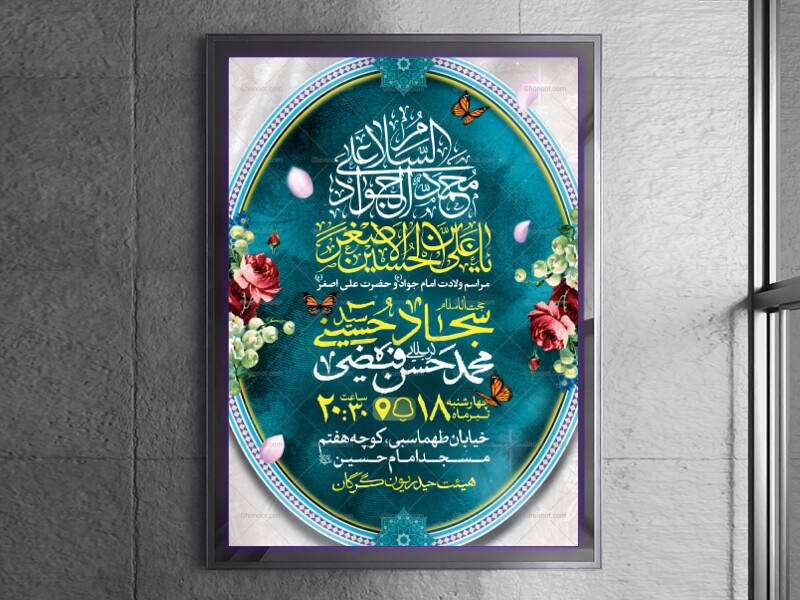 السلام علی
محمد الجواد
یا علی بن الحسین الاصغر
مراسم ولادت امام جواد(ع) و حضرت علی اصغر(ع)
حجت الاسلام
سید سجاد حسینی
کربلایی
محمد حسن فیضی
چهارشنبه ۱۸ تیرماه ساعت ۲۰:۳۰
خیابان طهماسبی، کوچه هفتم
مسجد امام حسین
هیئت حیدریون گرگان